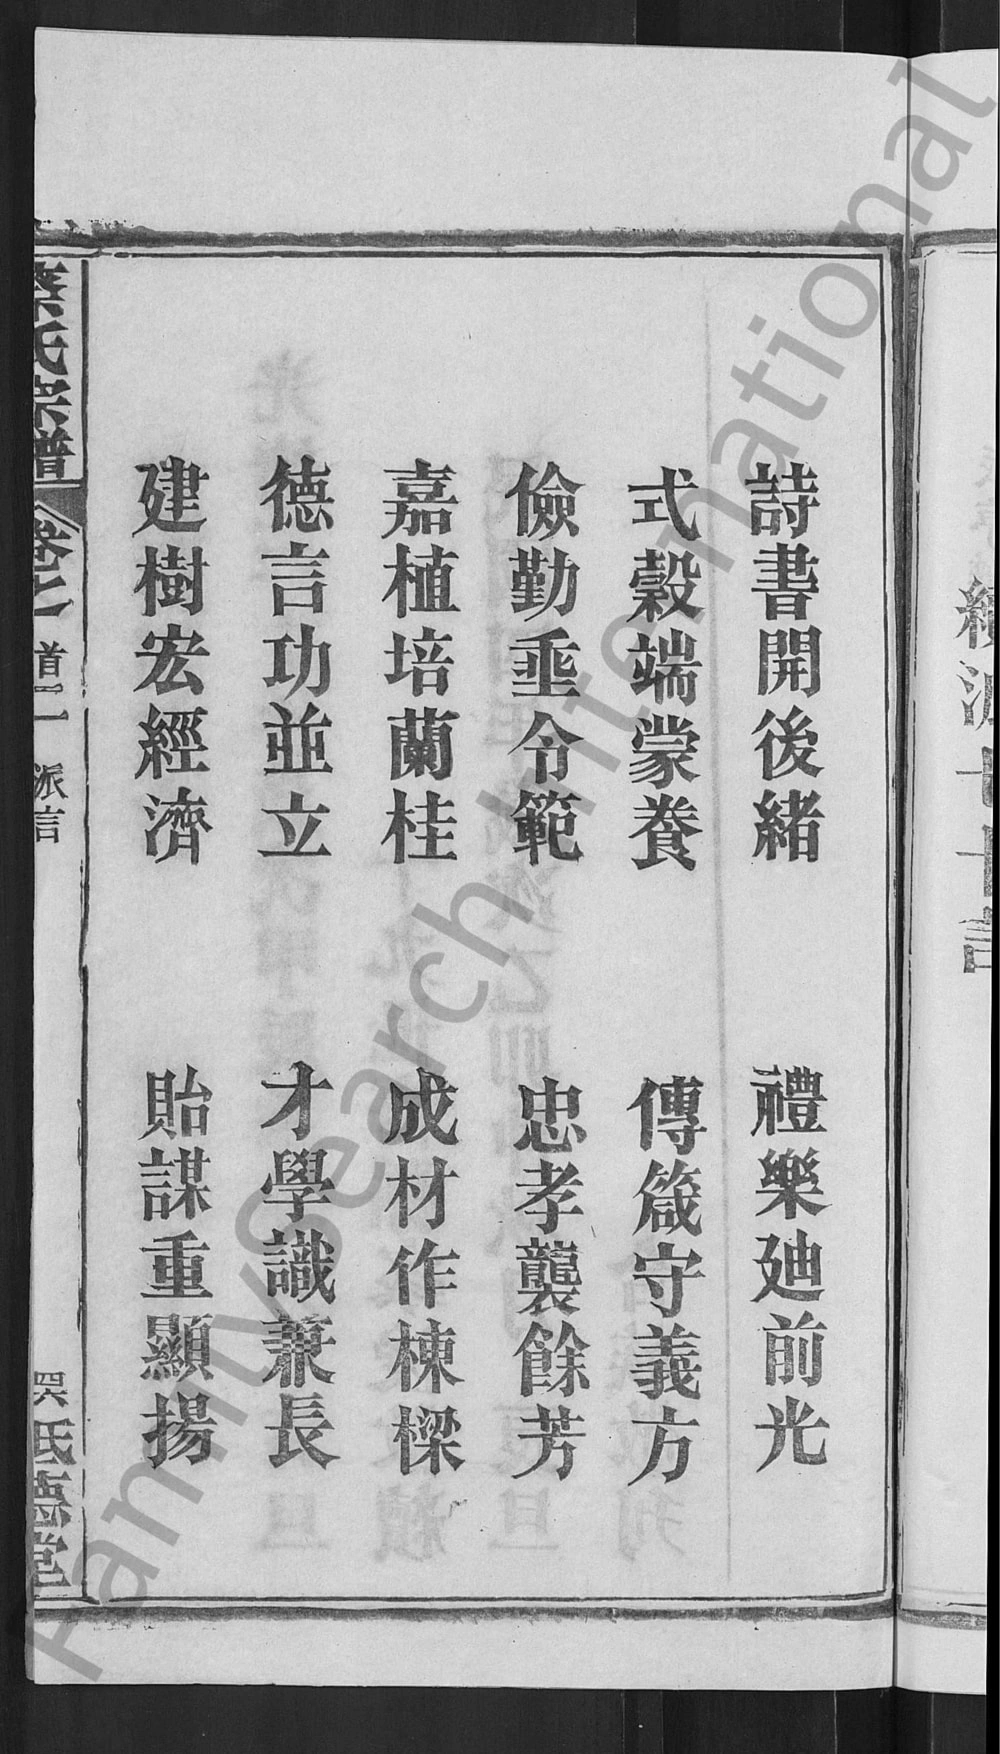 詩書開後緒　禮樂廸前光
式穀端蒙養　傳箴守義方
儉勤垂令範　忠孝襲餘芳
嘉植培蘭桂　成材作棟樑
德言功並立　才學識兼長
建樹宏經濟　貽謀重顯揚
氏宗譜
首二 派言
堂
FamilySearch International